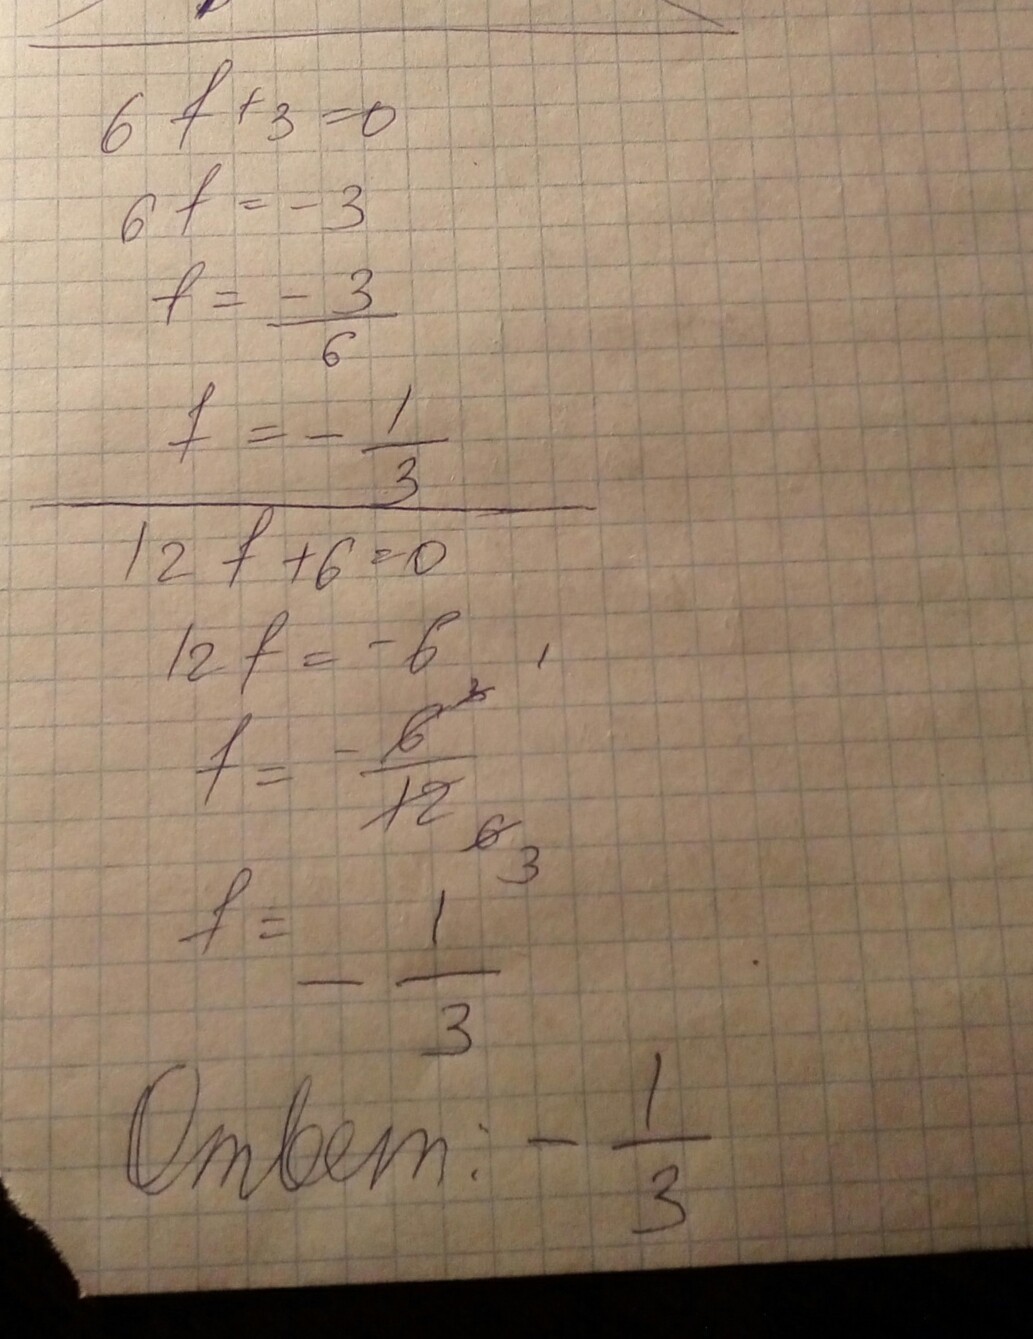 6 f + 3 = 0
6 f = - 3
f = - 3 / 6
f = - 1 / 3
12 f + 6 = 0
12 f = - 6
f = - 6 / 12 6 3
f = - 1 / 3
Ответ: - 1 / 3